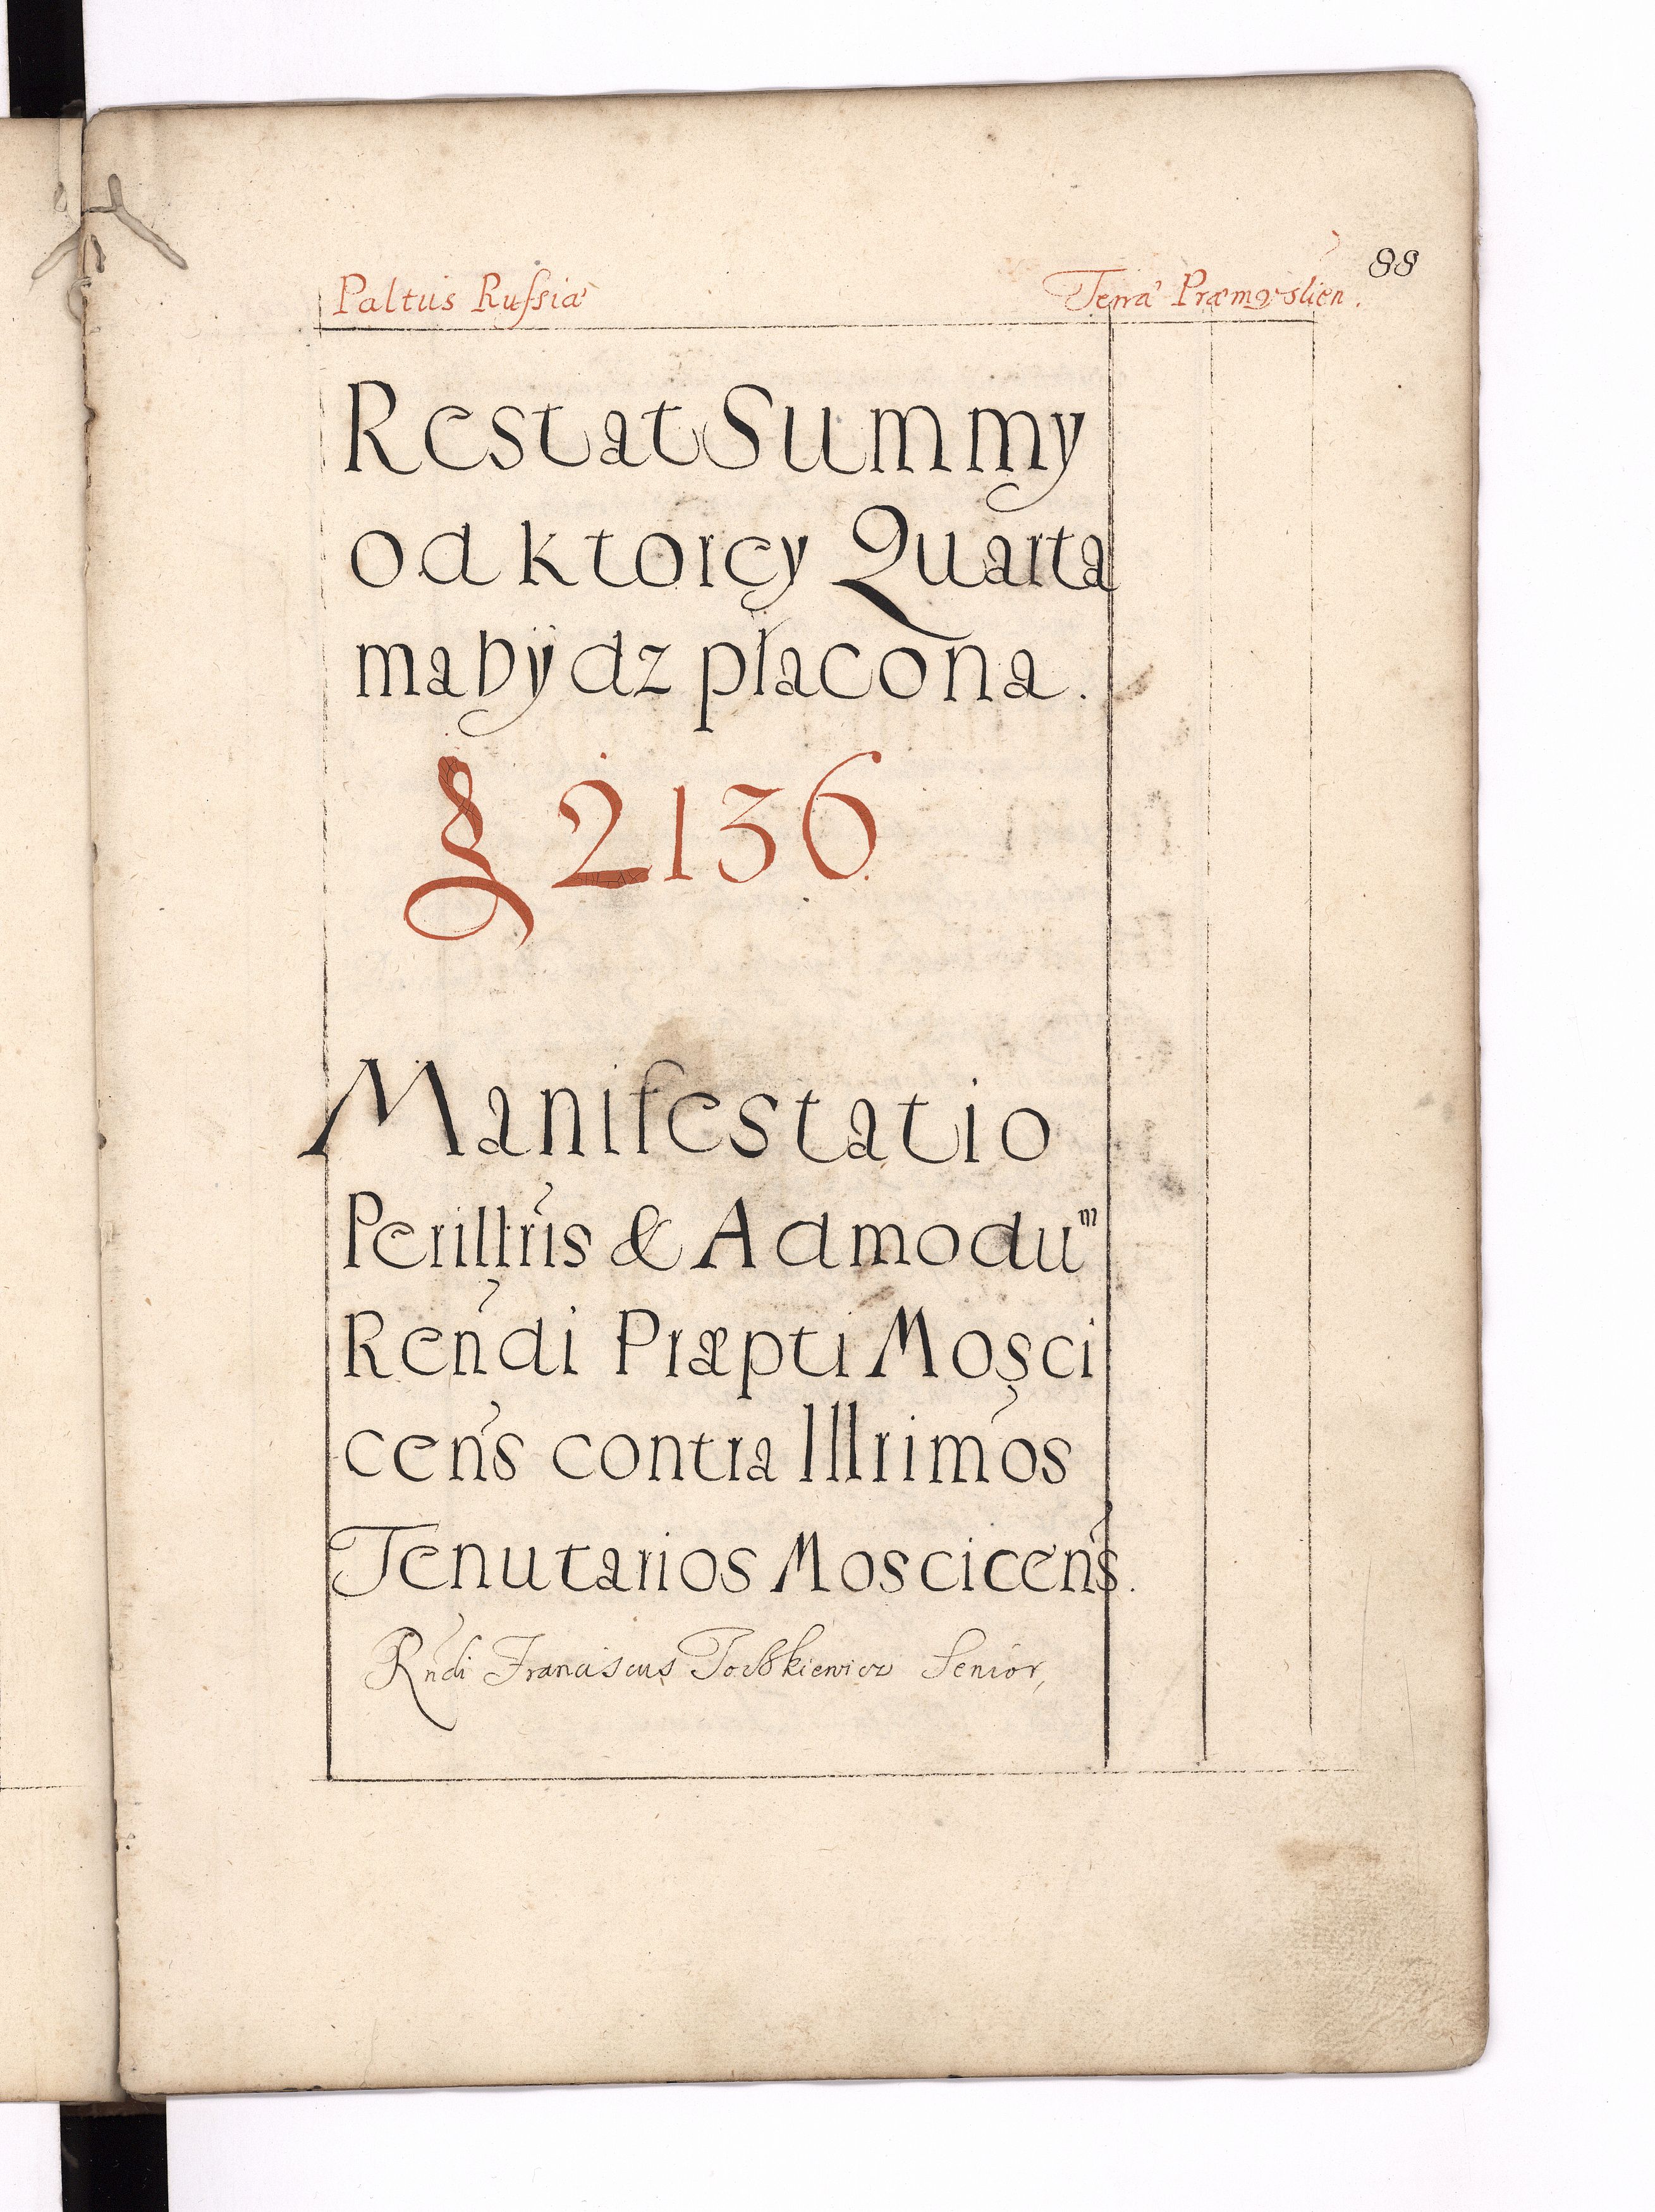 88
Paltus Russiæ Terræ Præmyslien.
Restat Summy
od ktorey Quarta
ma bÿdz płacona.
2136
Manifestatio
Perillris & Admodum
Rendi Præpti Mosci
cens contra Illrimos
Tenutarios Moscicens.
Rndi Franciscus Senior,